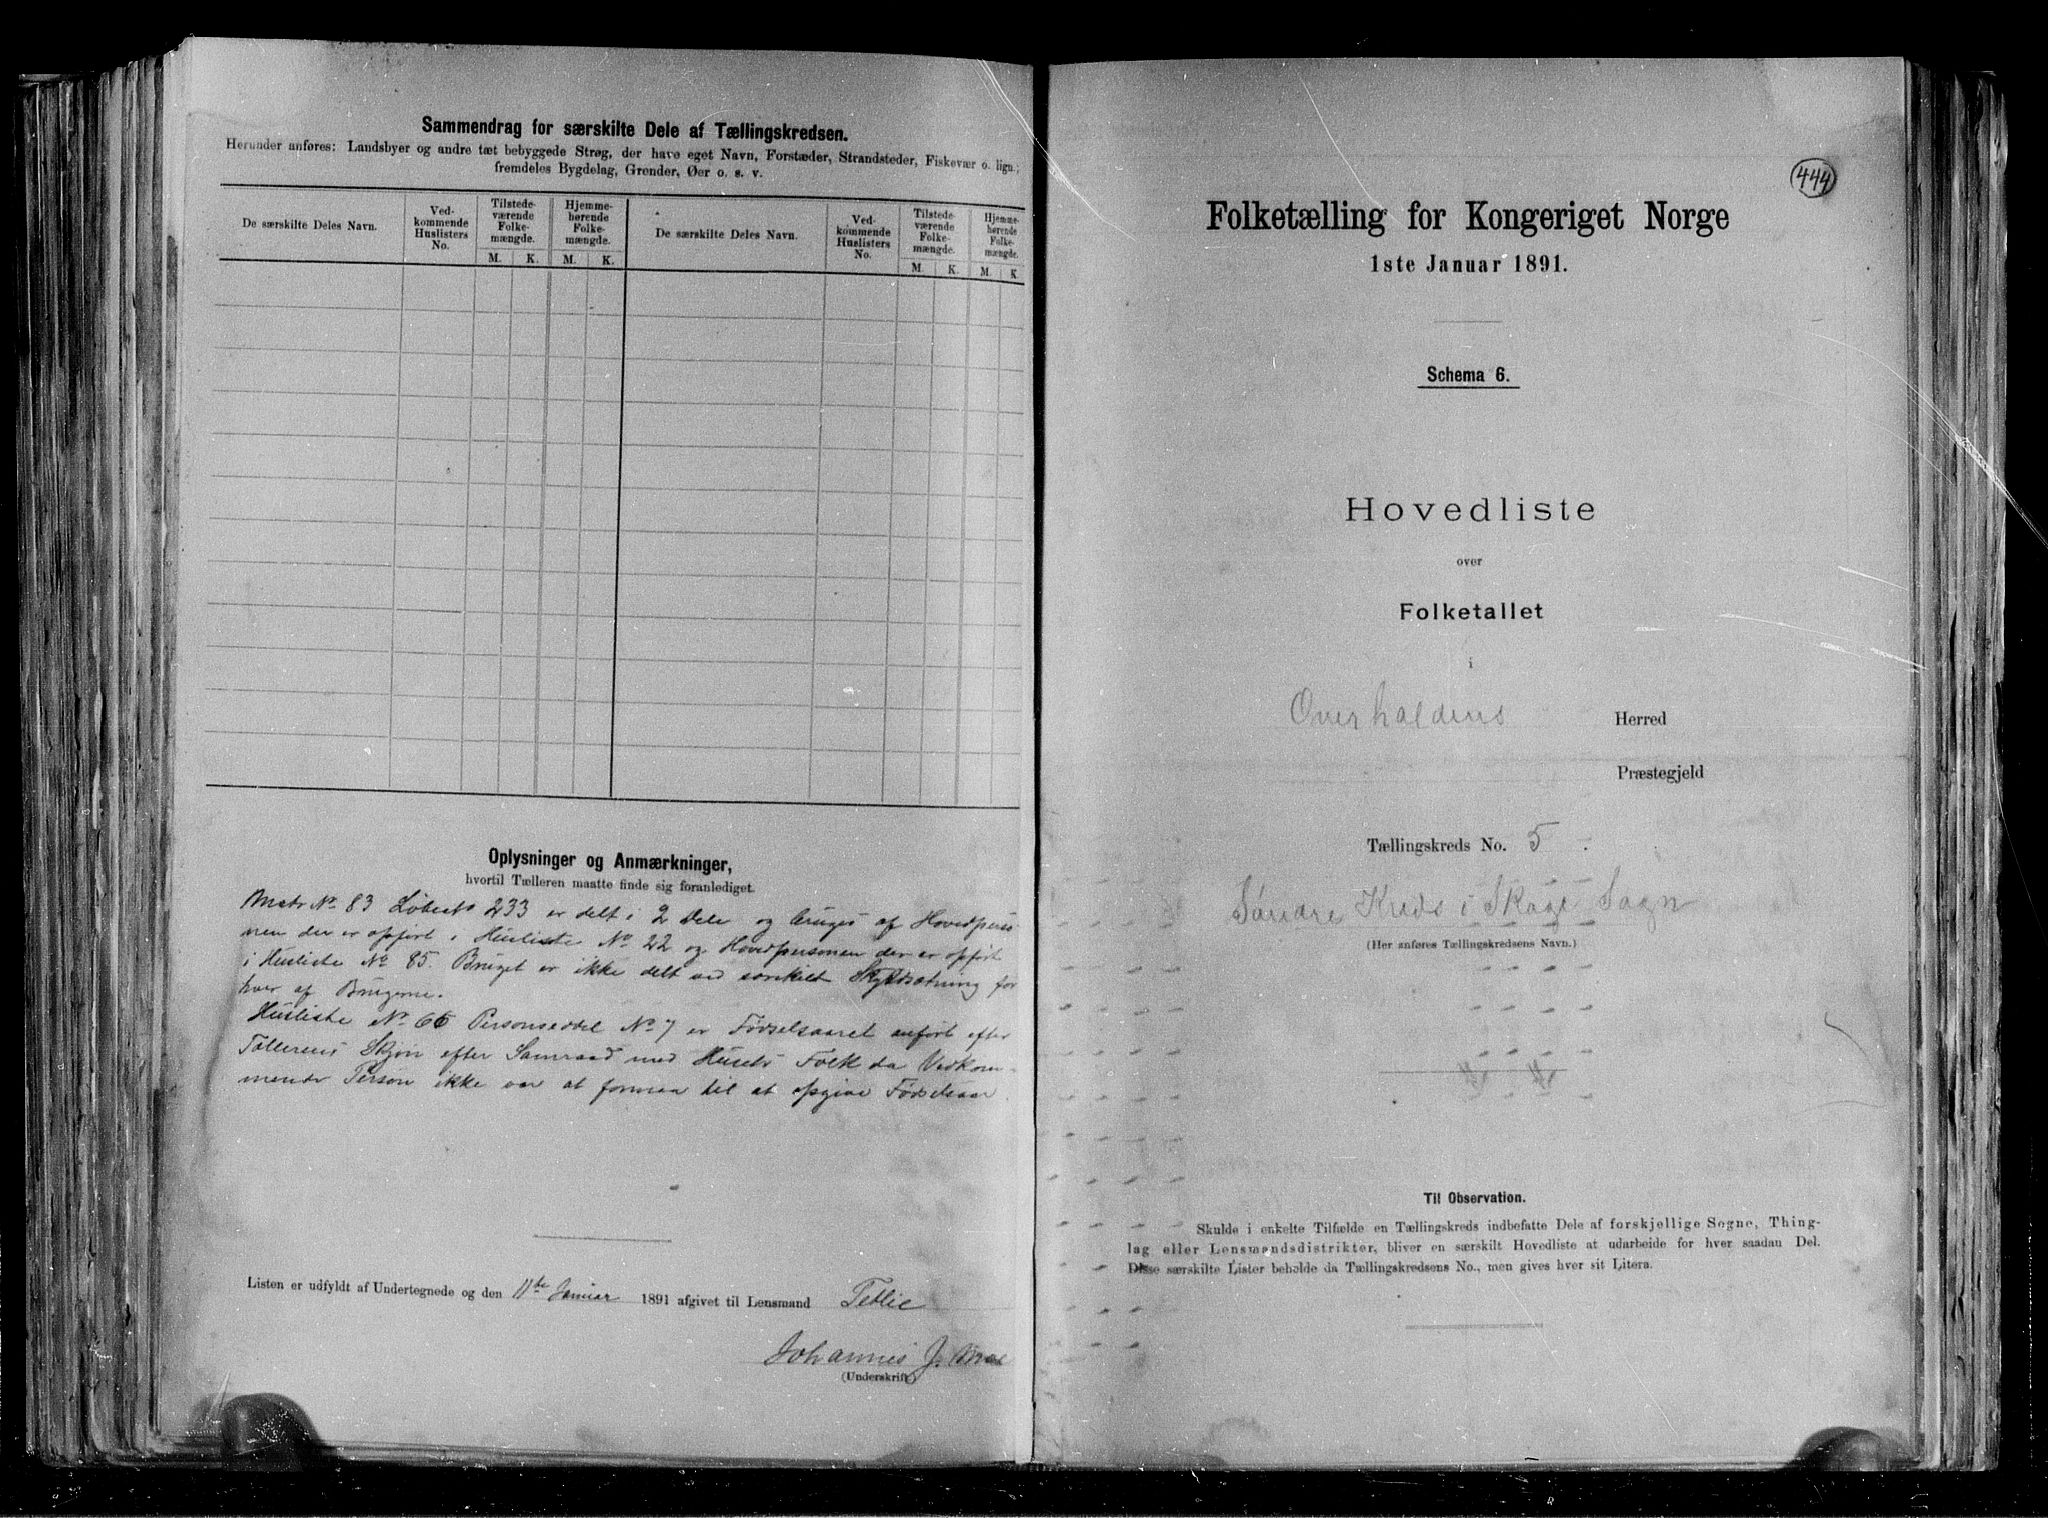 Sammendrag for særskilte Dele af Tællingskredsen.
Herunder anføres: Landsbyer og andre tæt bebyggede Strøg, der have eget Navn, Forstæder, Strandsteder, Fiskevær o. lign.;
fremdeles Bygdelag, Grender, Øer o. s. v.
De særskilte Deles Navn.
Ved-
kommende
Huslisters
No.
Tilstede-
værende
Folke-
mængde.
M. K.
Hjemme-
hørende
Folke-
mængde.
M. K.
De særskilte Deles Navn.
Ved-
kommende
Huslisters
No.
Tilstede-
værende
Folke-
mængde.
M. K.
Hjemme-
hørende
Folke-
mængde.
M. K
Oplysninger og Anmærkninger,
hvortil Tælleren maatte finde sig foranlediget.
Matr No 83 Løbests 233 er delt i 2 Dele og bruges af Hovedperso-
nen der er opført i Husliste No 22 og Hovedpersonen der er opført
i Husliste No 85. Bruget er ikke delt ved særskilt Skyldsætning for
hver af Brugerne.
Husliste No 66 Personseddel No 7 er Fødselsaaret anført efter
Tællerens Skjøn efter Samraad med Husets Folk da Vedkom-
mende Person ikke var at formaa til at opgive Fødselsaar.
Listen er udfyldt af Undertegnede og den 11te Januar 1891 afgivet til Lensmand Tetlie
Johannes J.
(Underskrift)
444
Folketælling for Kongeriget Norge
1ste Januar 1891.
Schema 6.
Hovedliste
over
Folketallet
i
Overhaldens Herred
Præstegjeld
Tællingskreds No. 5.
Søndre Kreds i Skage Sogn
(Her anføres Tællingskredsens Navn.)
Til Observation.
Skulde i enkelte Tilfælde en Tællingskreds indbefatte Dele af forskjellige Sogne, Thing-
lag eller Lensmandsdistrikter, bliver en særskilt Hovedliste at udarbeide for hver saadan Del.
Disse særskilte Lister beholde da Tællingskredsens No., men gives hver sit Litera.